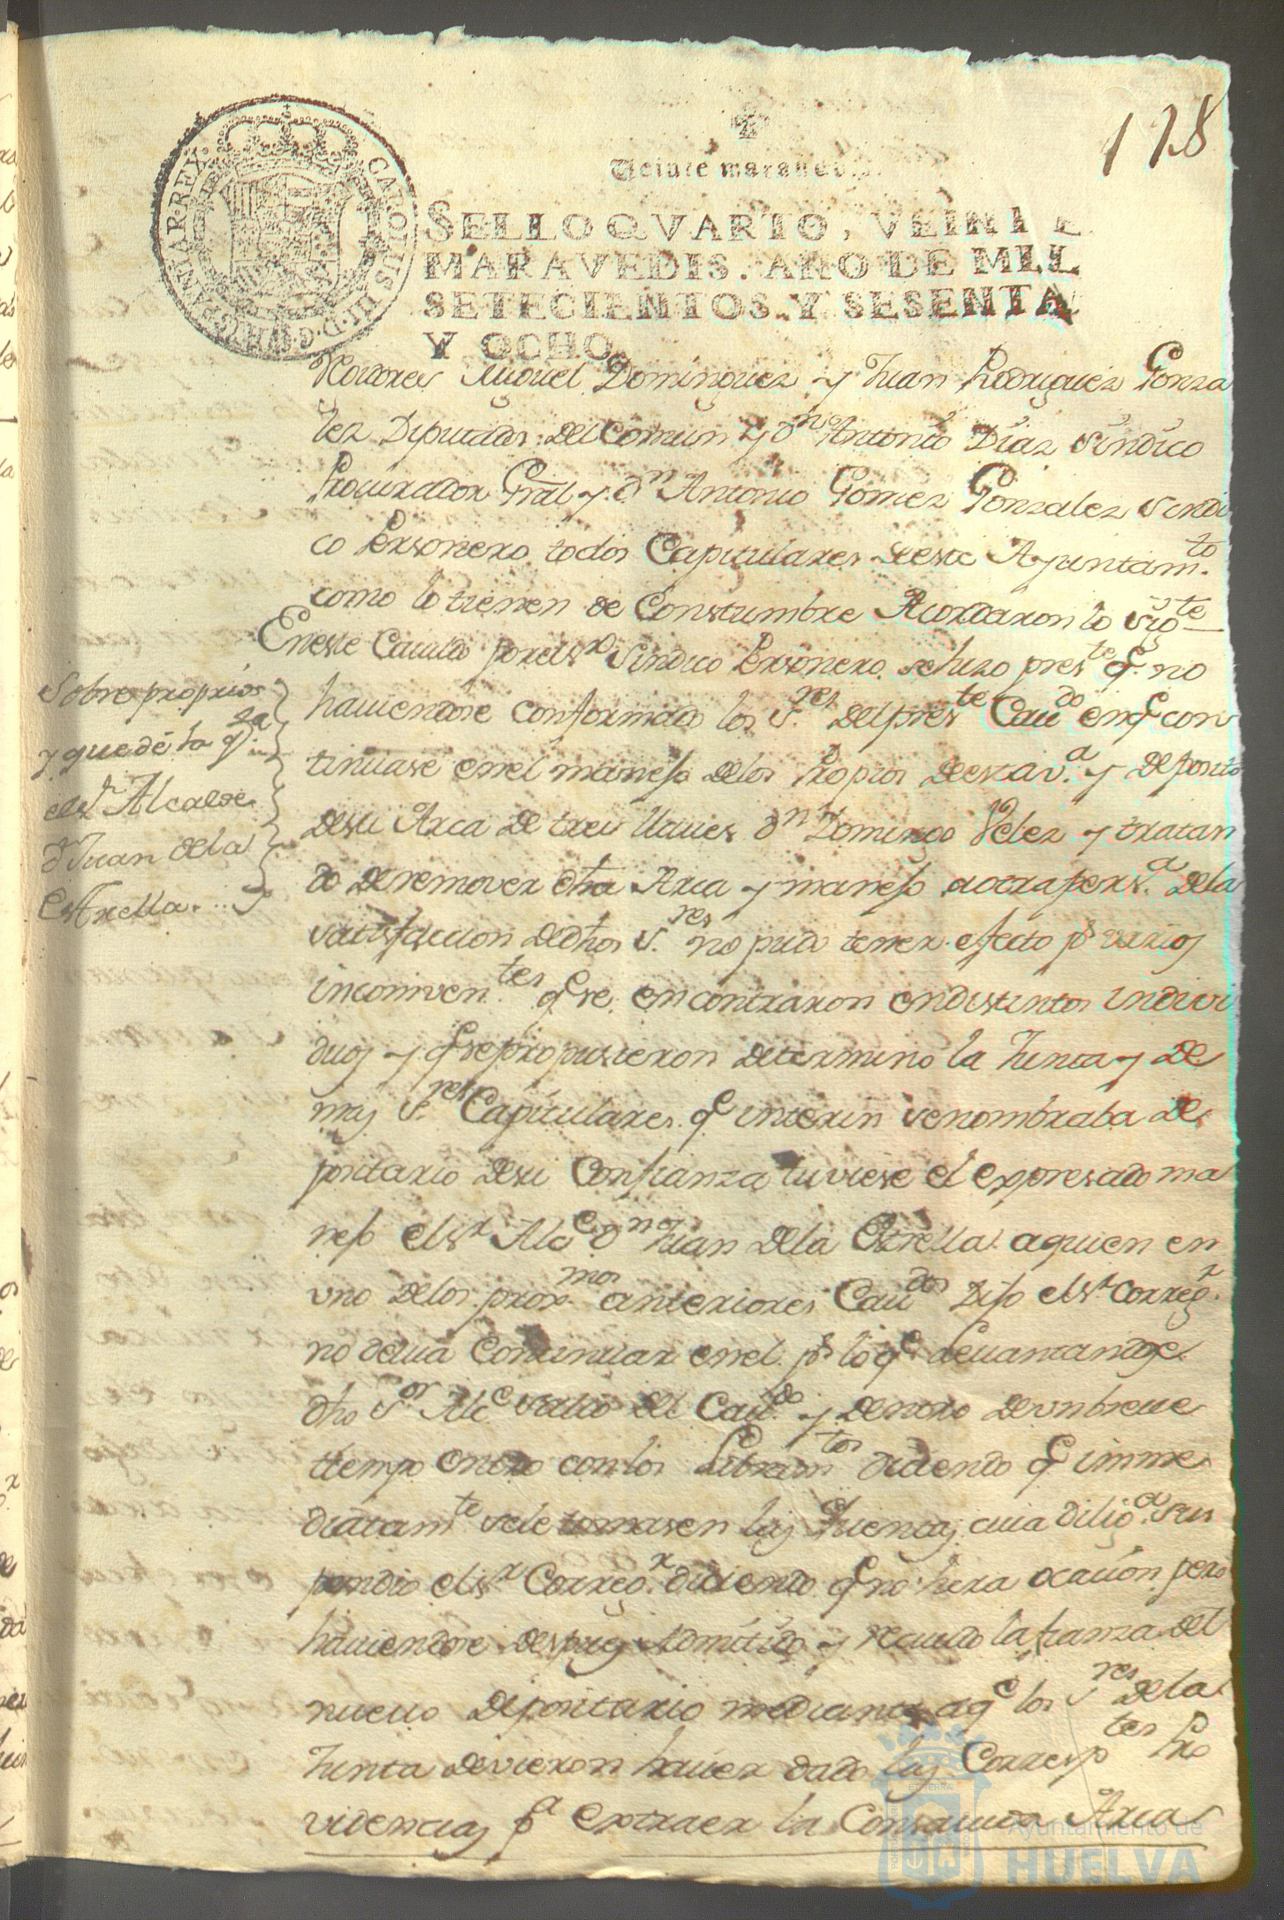 128
Veinte maraued
SELLO QVARTO, VEINTE
MARAVEDIS, AÑO DE MIL
SETECIENTOS Y SESENTA
Y OCHO.
CAROLUS III D G HISPANIAR REX
Rexidores Miguel Dominguez y Juan Rodriguez Gonza
lez Diputados del Comun y Dn Antonio Diaz Sindico
Procurador Gral y Dn Antonio Gomez Gonzalez Sindi
co Personero todos Capitulares deste Ayuntamto
como lo tienen de Constumbre Acordaron lo sigte
En este Cauildo por el Sr Sindico Personero se hizo preste q no
hauiendose conformado los Sres del preste Caudo en q con
tinuase en el manejo de los Propios desta va y deposito
de su Arca de tres llaues Dn Domingo Velez y tratan
do de remover dha Arca y manejo a otra persa de la
satisfaccion de dhos Sres no pudo tener efecto pr varios
inconventes q se encontraron en distintos indivi
duos y q se propusieron determino la Junta y de
mas Sres Capitulares q interin se nombraba de
positario de su Confianza tuviese el expresado ma
nejo el Sr Alce Dn Juan de la Estrella a quien en
uno de los proxmos anteriores Caudos Dijo el Sr Corregr
no deuia Continuar en el pr lo q leuantandose
dho Sor Alce salio del Caudo y dentro de un breue
tiempo entro con los Libramtos diciendo q imme
diatamte se le tomasen las Quentas cuia diliga sus
pendio el Sr Corregr diciendo q no hera ocasion pero
hauiendose despues admitido y reciuido la fianza del
nueuo depositario mediante a q los Sres de la
Junta devieron hauer dado las Correspotes Pro
videncias pa extraer la Consauida Arca
Sobre proprios
y que dé la qta
el Sr Alcalde
D Juan de la
Estrella
Ayuntamiento de
HUELVA